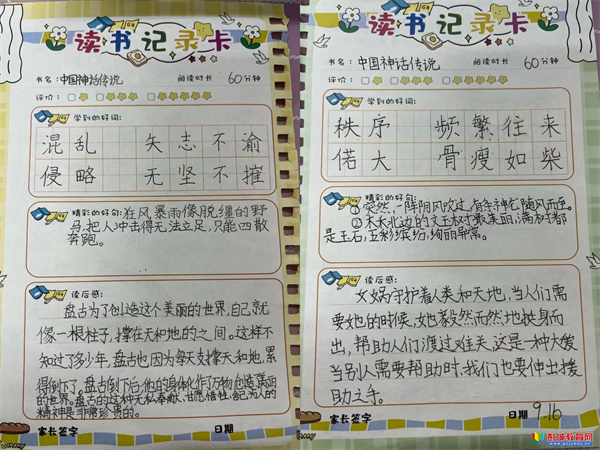 读书记录卡
书名:中国神话传说 阅读时长 60分钟
评价:
学到的好词:
混乱 矢志不渝
侵略 无坚不摧
精彩的好句:狂风暴雨像脱缰的野
马,把人冲击得无法立足,只能四散
奔跑。
读后感:
盘古为了创造这个美丽的世界,自己就
像一根柱子,撑在天和地的之间。这样不
知过了多少年,盘古也因为每天支撑天和地,累
得倒下了。盘古倒下后他的身体化作万物创造了美丽
的世界。盘古的这种无私奉献、甘愿牺牲自己为人的
精神是非常珍贵的。
家长签字 日期
读书记录卡
书名:中国神话传说 阅读时长 60分钟
评价:
学到的好词:
秩序 频繁往来
偌大 骨瘦如柴
精彩的好句:①突然,一阵阴风吹过,有条神龙随风而至。
②木禾北边的文玉树才最美丽,满树都
是玉石,五彩缤纷,绚丽异常。
读后感:
女娲守护着人类和天地,当人们需
要她的时候,她毅然而然地挺身而
出,帮助人们渡过难关,这是一种大爱
当别人需要帮助时,我们也要伸出援
助之手。
家长签字 日期 9.16
彭湖教育网